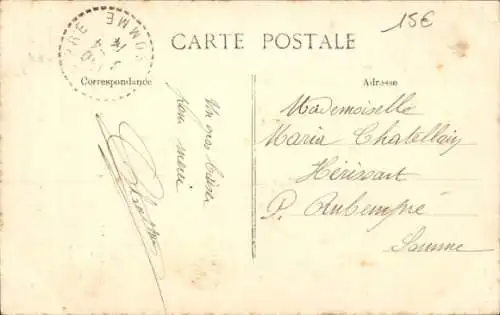 15€
SOMME
CARTE POSTALE
Correspondance
Adresse
Un gros baiser
pour mémé
Mademoiselle
Maria Chatellain
Hérissart
P. Aubempré
Somme